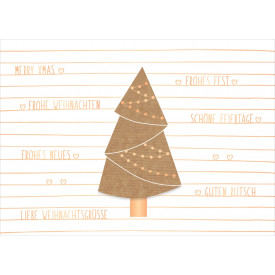 MERRY XMAS
FROHES FEST
FROHE WEIHNACHTEN
SCHÖNE FEIERTAGE
FROHES NEUES
GUTEN RUTSCH
LIEBE WEIHNACHTSGRÜSSE